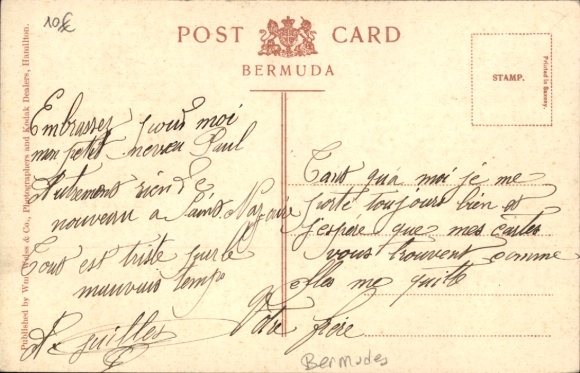 10€
POST CARD
BERMUDA
STAMP.
Printed in Saxony.
Published by Wm. Weiss & Co., Photographers and Kodak Dealers, Hamilton.
Embrassez pour moi
mon petit neveu Paul
Autrement rien de
nouveau a Saint Nazaire
Tout est triste par le
mauvais temps
Tant qua moi je me
porte toujours bien et
j'espère que mes cartes
vous trouvent comme
elles me quitte
Votre frère
Bermudes